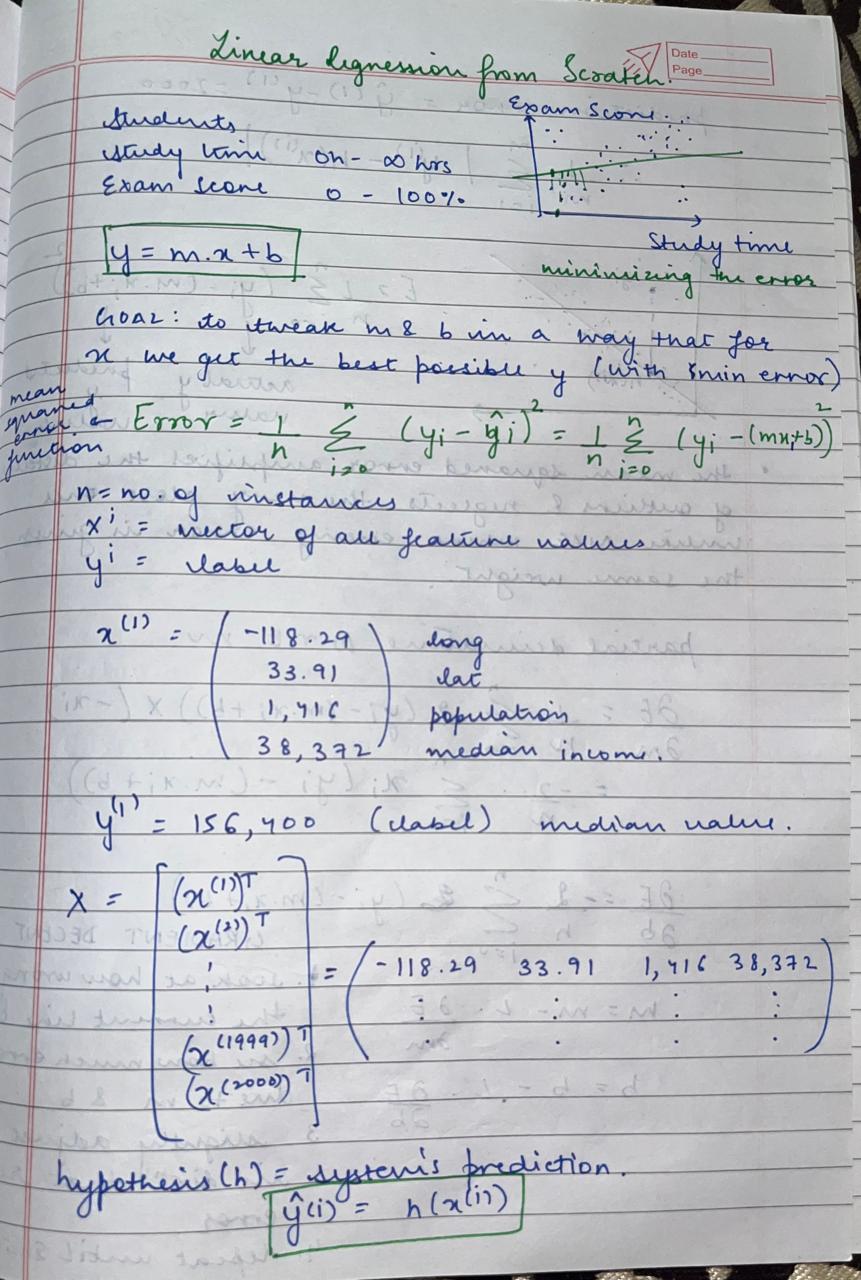 Linear Regression from Scratch.
Date
Page
Students
study time 0h - ∞ hrs
Exam score 0 - 100%
Exam Score
Study time
minimizing the error
y = m.x + b
GOAL: to tweak m & b in a way that for
x we get the best possible y (with min error)
mean
squared
error
function
Error = 1/n Σ_{i=0}^{n} (yi - ŷi)² = 1/n Σ_{i=0}^{n} (yi - (mxi+b))²
n = no. of instances
x^i = vector of all feature values
y^i = label
x^(1) = ( -118.29 long
33.91 lat
1,416 population
38,372 ) median income.
y^(1) = 156,400 (label) median value.
X = [ (x^(1))^T
(x^(2))^T
⋮
(x^(1999))^T
(x^(2000))^T ] = ( -118.29 33.91 1,416 38,372
⋮ ⋮ ⋮ ⋮ )
hypothesis (h) = system's prediction.
ŷ(i) = h(x(i))